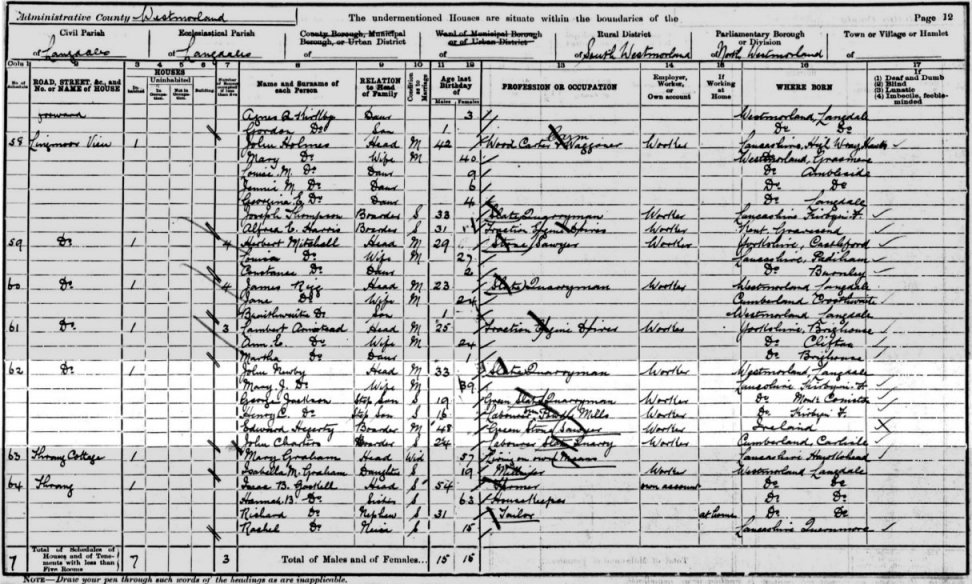 Administrative County Westmorland The undermentioned Houses are situate within the boundaries of the Page 12
Civil Parish Ecclesiastical Parish County Borough, Municipal Borough, or Urban District Ward of Municipal Borough or of Urban District Rural District Parliamentary Borough or Division Town or Village or Hamlet
of Langdales of Langdales of of of South Westmorland of North Westmorland of
No. of Schedule ROAD, STREET, &c., and No. or NAME of HOUSE HOUSES Inhabited Uninhabited Building Name and Surname of each Person RELATION to Head of Family Condition as to Marriage Age last Birthday of Males Females PROFESSION OR OCCUPATION Employer, Worker, or Own account If Working at Home WHERE BORN (1) Deaf and Dumb (2) Blind (3) Lunatic (4) Imbecile, feeble-minded
forward Agnes Kirkby Daur 3 Westmorland Langdale
Gordon Do Son 1 Do Do
58 View 1 John Holmes Head M 42 Wood Carter Waggoner Worker Lancashire,
Mary Do Wife M 40 Westmorland, Grasmere
Louisa M. Do Daur 9 Do Ambleside
Jennie M. Do Daur 6 Do Do
Georgina E. Do Daur 4 Do Langdale
Joseph Thompson Boarder S 33 Slate Quarryman Worker Lancashire Kirkby
Alfred C. Harris Boarder S 31 Traction Engine Driver Worker Kent, Gravesend
59 Do 1 4 Herbert Mitchell Head M 29 Stone Sawyer Worker Yorkshire, Castleford
Louisa Do Wife M 27 Lancashire, Padiham
Constance Do Daur 2 Do Burnley
60 Do 1 4 James Rigg Head M 23 Slate Quarryman Worker Westmorland Langdale
Jane Do Wife M 24 Cumberland Crosthwaite
Braithwaite Do Son 1 Westmorland Langdale
61 Do 1 3 Lambert Head M 25 Traction Engine Driver Worker Yorkshire, Brighouse
Ann E. Do Wife M 24 Do Clifton
Martha Do Daur 1 Do Brighouse
62 Do 1 John Newby Head M 33 Slate Quarryman Worker Westmorland, Langdale
Mary J. Do Wife M 39 Lancashire Kirkby
George Jackson Step Son S 19 Green Slate Quarryman Worker Do Monk Coniston
Henry C. Do Step Son S 16 Labourer Mills Worker Do Kirkby
Edward Hegerty Boarder M 48 Green Stone Sawyer Worker Ireland
John Charters Boarder S 24 Labourer Slate Quarry Worker Cumberland, Carlisle
63 Thrang Cottage 1 Mary Graham Head Wid 57 Living on own Means Lancashire Hawkshead
Isabella M. Graham Daughter S 19 Worker Westmorland Langdale
64 Thrang 1 Isaac B. Gaskell Head S 54 Farmer own account Do Do
Hannah B. Do Sister S 63 Housekeeper Do Do
Richard Do Nephew S 31 Tailor at home Do Do
Rachel Do Niece S 15 Lancashire Quernmore
7 Total of Schedules of Houses and of Tenements with less than Five Rooms 7 3 Total of Males and of Females... 15 16
NOTE—Draw your pen through such words of the headings as are inapplicable.